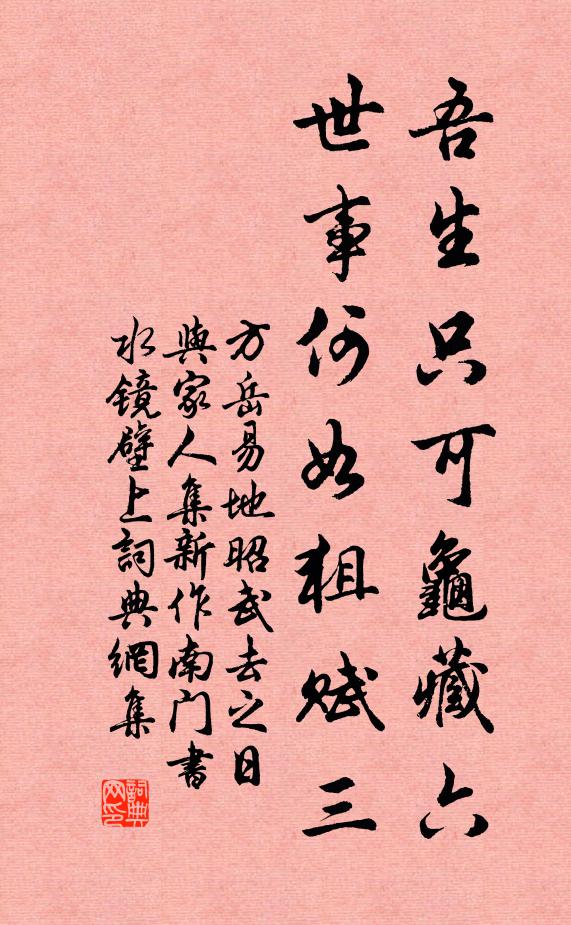 吾生只可龜藏六
世事何如狙賦三
方岳易地昭武去之日
與家人集新作南门書
水镜壁上詞典網集
詞典
网印